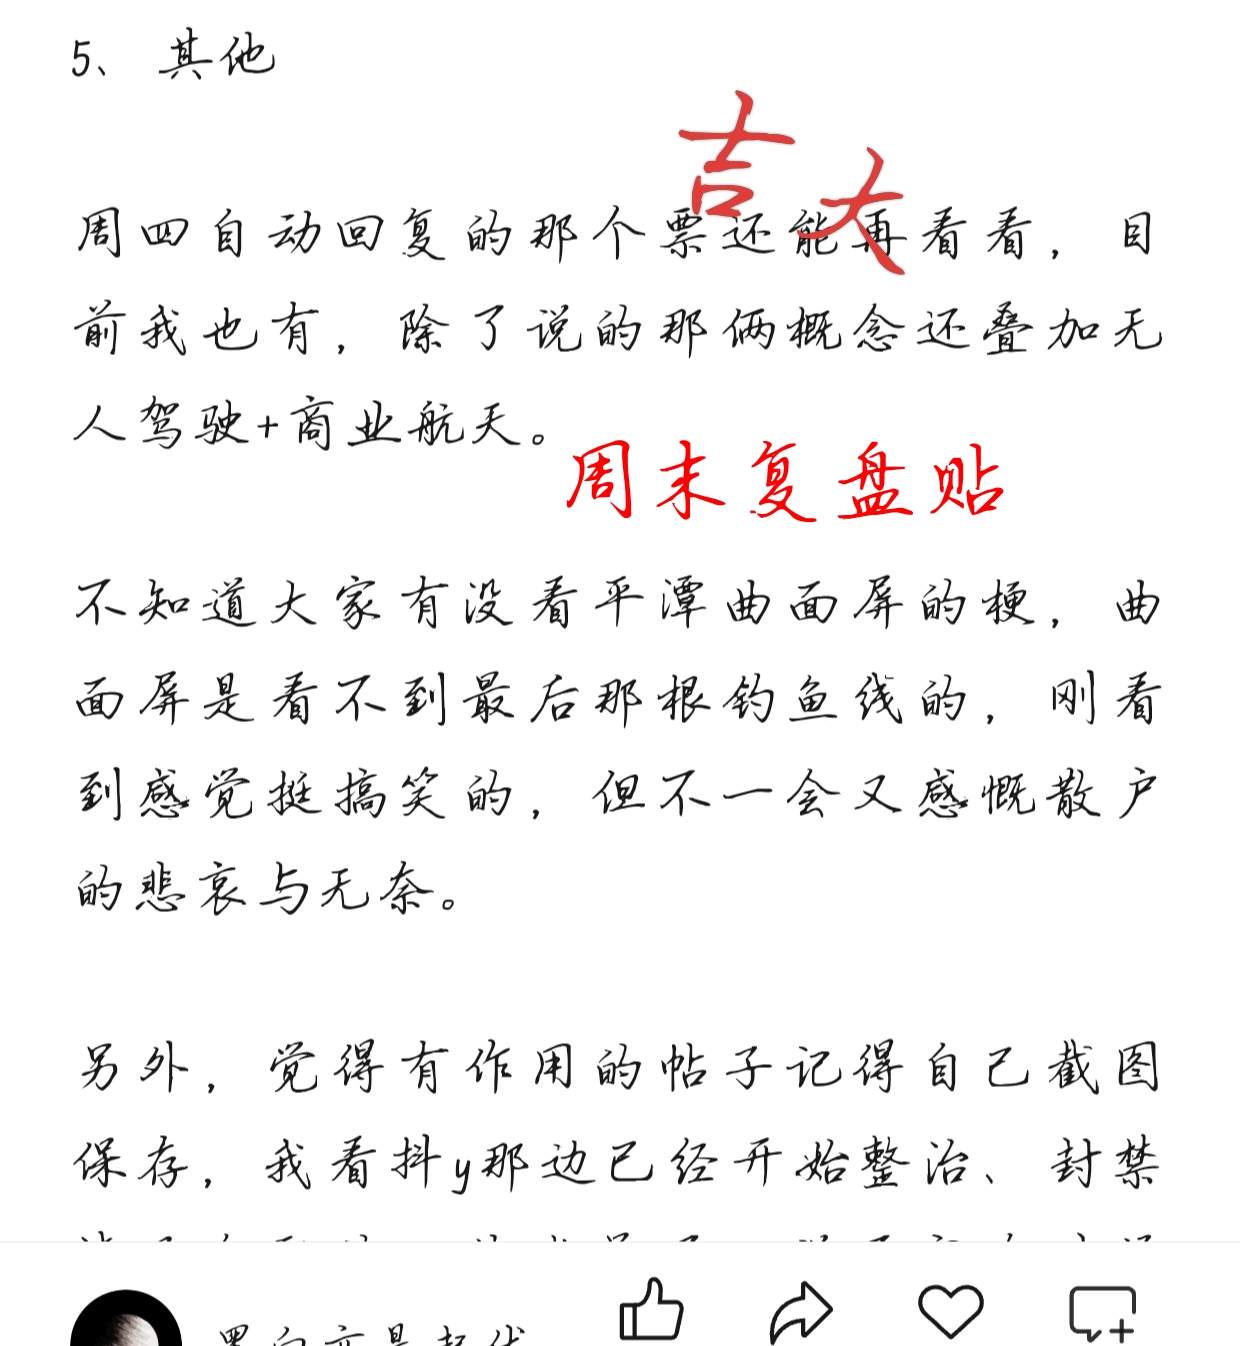 5、 其他
吉大
周四自动回复的那个票还能再看看，目
前我也有，除了说的那俩概念还叠加无
人驾驶+商业航天。
周末复盘贴
不知道大家有没看平潭曲面屏的梗，曲
面屏是看不到最后那根钓鱼线的，刚看
到感觉挺搞笑的，但不一会又感慨散户
的悲哀与无奈。
另外，觉得有作用的帖子记得自己截图
保存，我看抖y那边已经开始整治、封禁